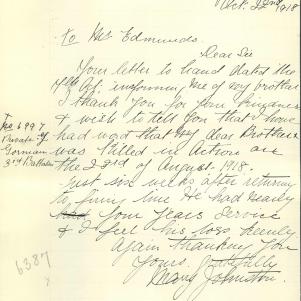 Oct. 22nd 1918
To Mr Edmunds.
Dear Sir
Your letter to hand dated the
of informing me of my brother
I thank you for your kindness
& wish to tell you that I have
had word that my dear Brother
No 6997
Private
3rd Battalion
was killed in action on
the 23rd of August 1918.
Just six weeks after returning
to firing line He had nearly
four years service
& I feel his loss keenly
Again thanking you
Yours faithfully
Johnston.
6387